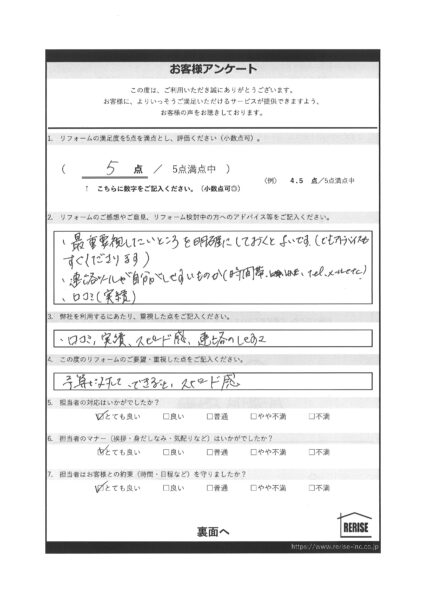 お客様アンケート
この度は、ご利用いただき誠にありがとうございます。
お客様に、よりいっそうご満足いただけるサービスが提供できますよう、
お客様の声をお聴きしております。
1. リフォームの満足度を5点を満点とし、評価ください（小数点可）。
（ 5 点 ／ 5点満点中 ）
（例） 4.5 点／5点満点中
↑ こちらに数字をご記入ください。（小数点可◎）
2. リフォームのご感想やご意見、リフォーム検討中の方へのアドバイス等をご記入ください。
・最重要視したいところを明確にしておくとよいです（でもアドバイスも
すぐくださります）
・連絡ツールが自分がしやすいものか（時間帯、LINE、tel、mail etc）
・口コミ（実績）
3. 弊社を利用するにあたり、重視した点をご記入ください。
・口コミ、実績、スピード感、連絡のしやすさ
4. この度のリフォームのご要望・重視した点をご記入ください。
予算に対して、できること、スピード感
5. 担当者の対応はいかがでしたか？
☑とても良い □良い □普通 □やや不満 □不満
6. 担当者のマナー（挨拶・身だしなみ・気配りなど）はいかがでしたか？
☑とても良い □良い □普通 □やや不満 □不満
7. 担当者はお客様との約束（時間・日程など）を守りましたか？
☑とても良い □良い □普通 □やや不満 □不満
裏面へ
RERISE
https://www.rerise-inc.co.jp